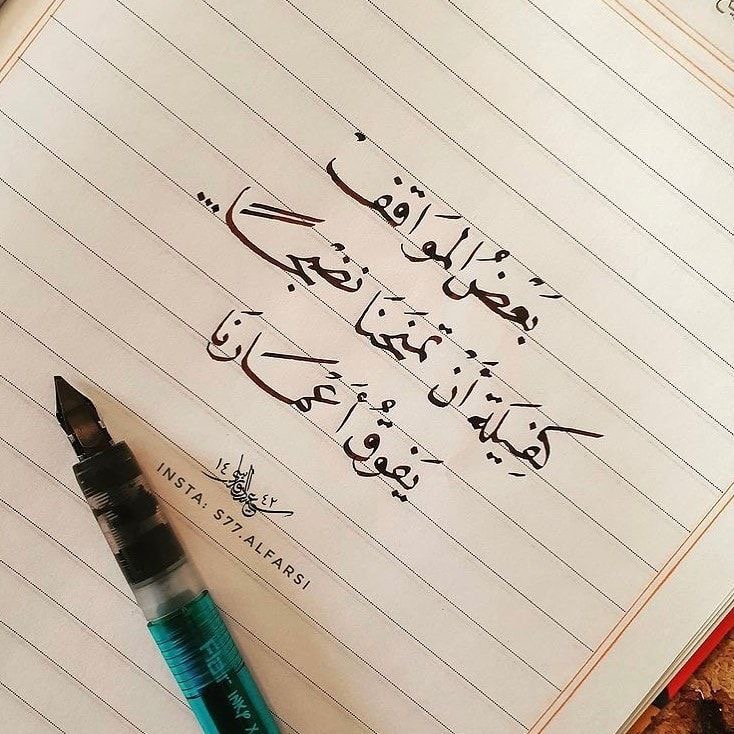 بَعْضُ المَوَاقفْ
كَفِيلَةٌ أَنْ تمْنَحَنَا نُضْجًا...
يَفوقُ أَعْمَارنَا
١٤٤٢
INSTA: S77.ALFARSI
INK X